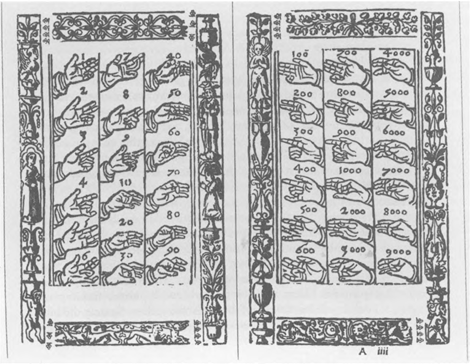 7 40
2 8 50
3 9 60
4 10 70
20 80
30 90
100 700 4000
200 800 5000
300 900 6000
400 1000 7000
500 2000 8000
600 3000 9000
A iiii